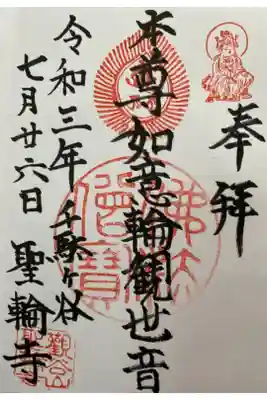 奉拝
本尊如意輪観世音
千駄ヶ谷
聖輪寺
令和三年
七月廿六日
佛法僧寶